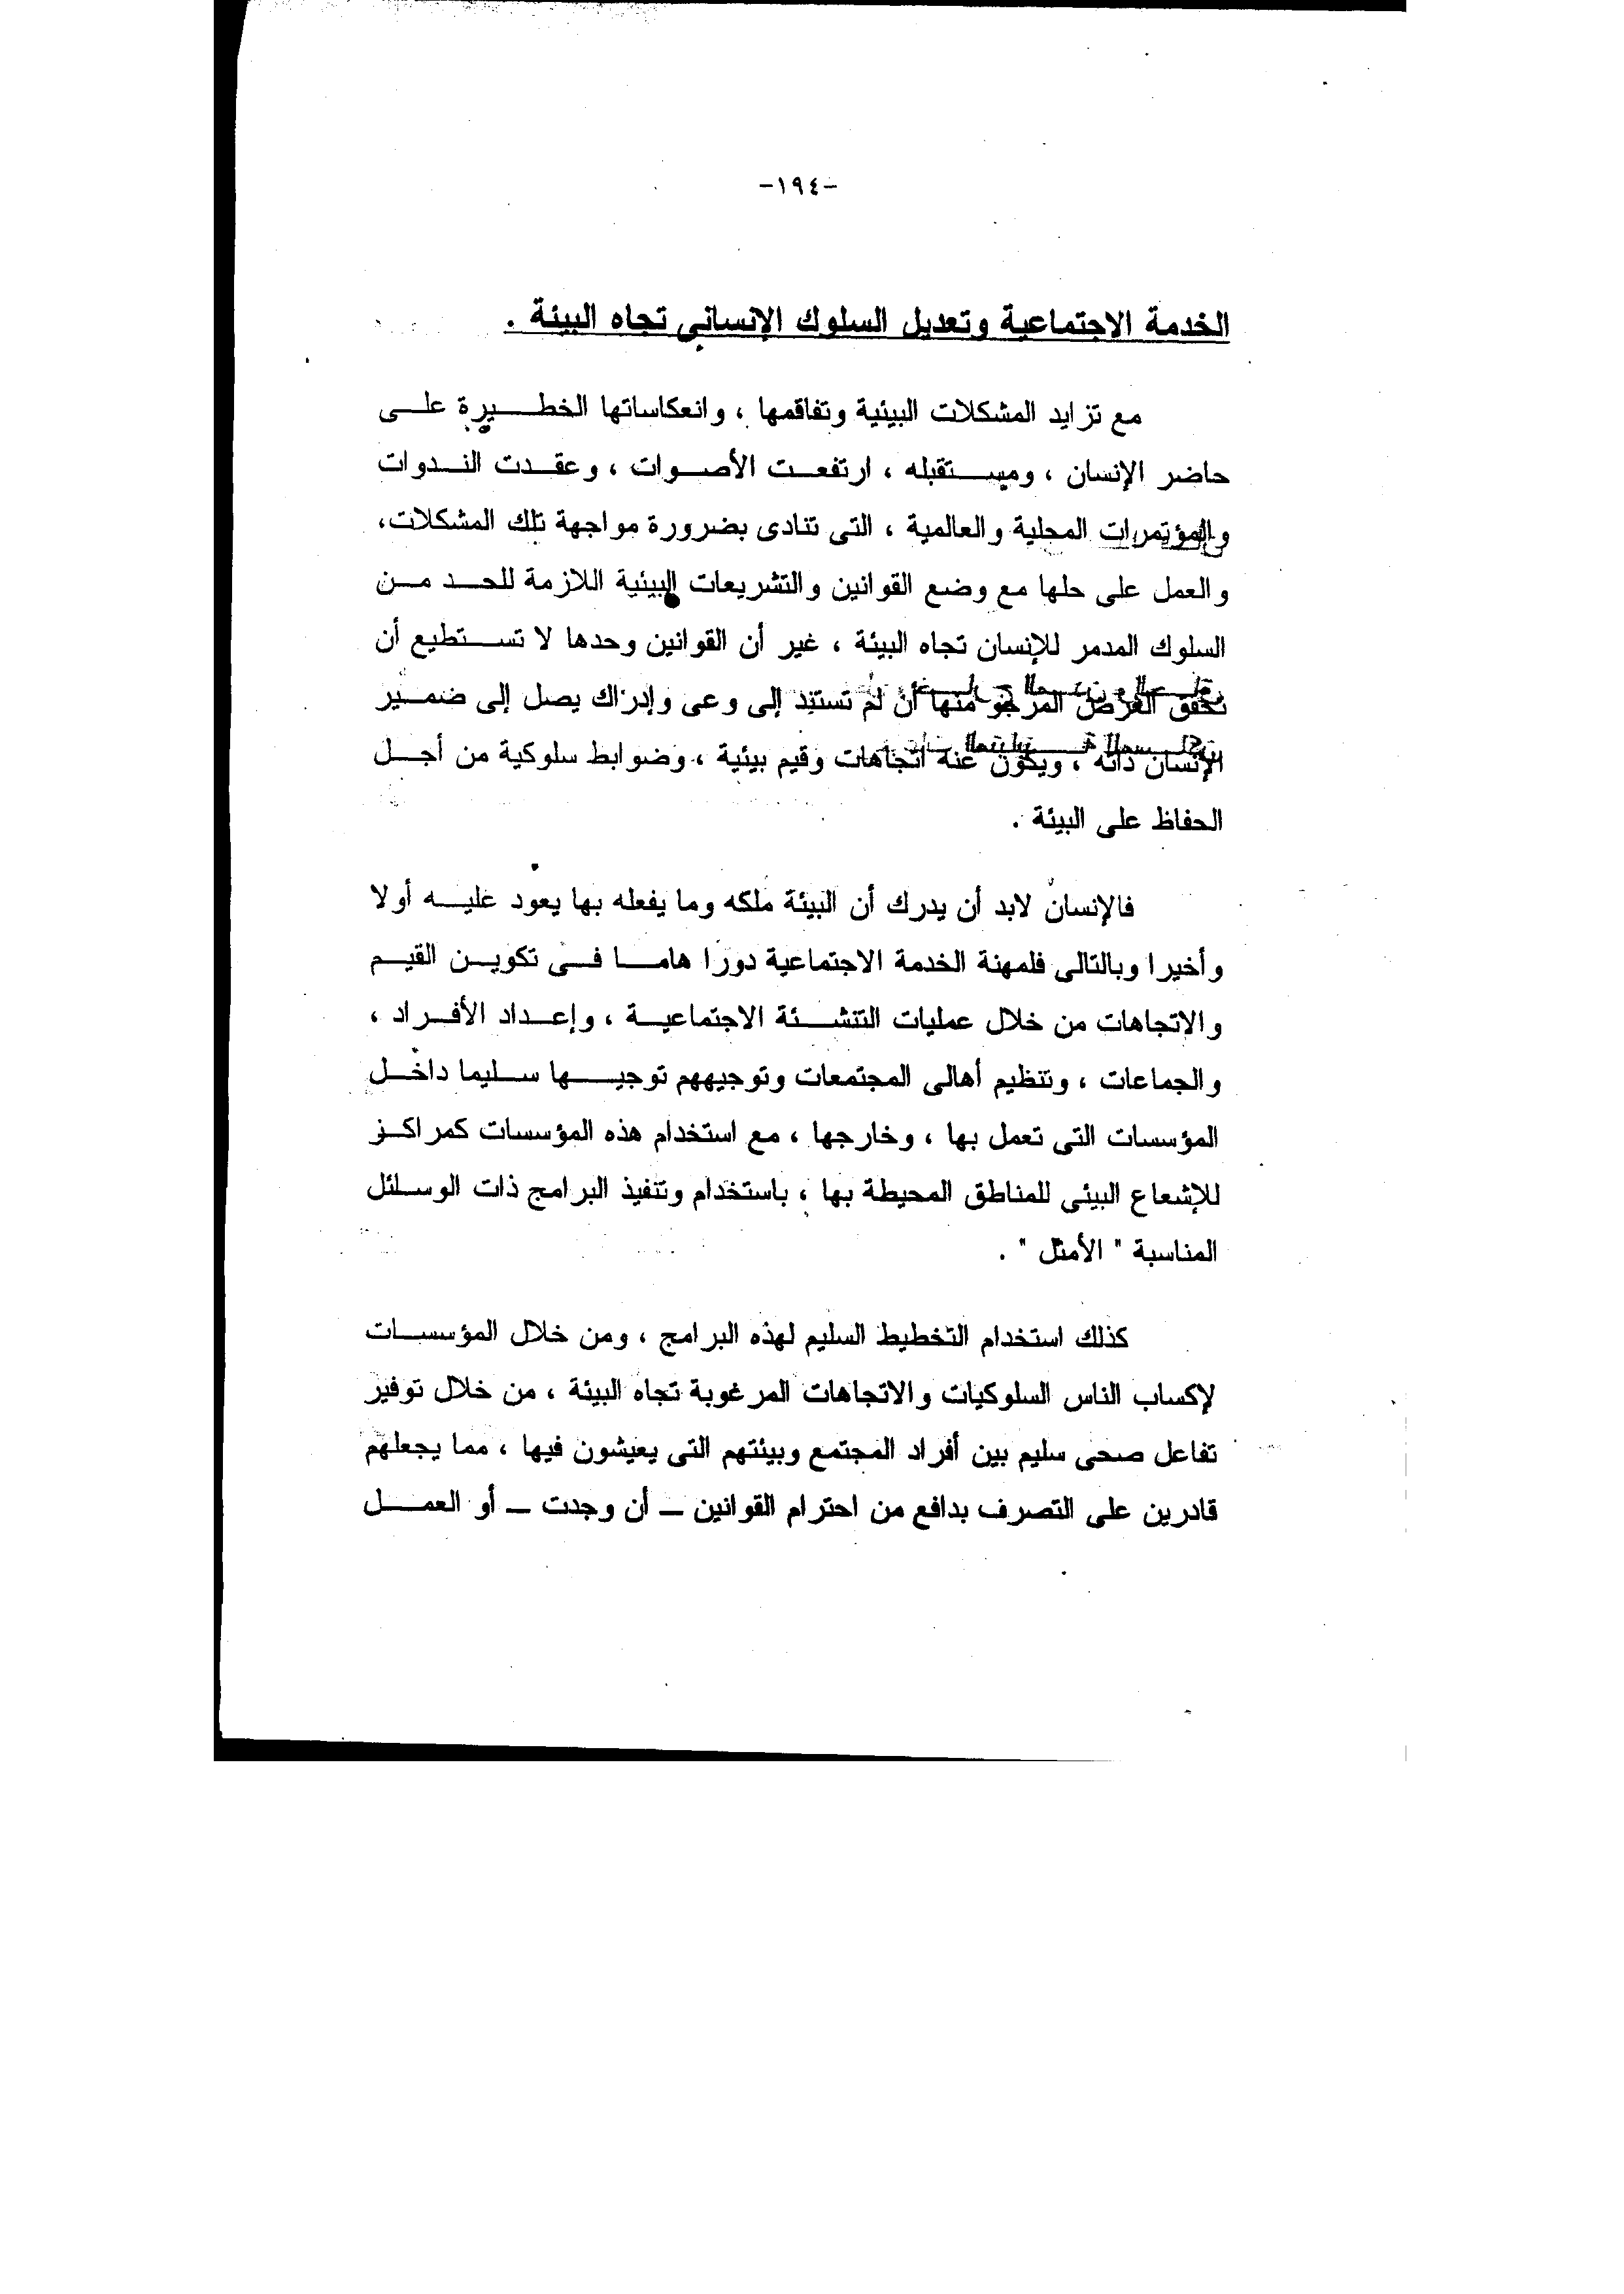 -١٩٤-
الخدمة الاجتماعية وتعديل السلوك الإنسانى تجاه البيئة .
مع تزايد المشكلات البيئية وتفاقمها ، وانعكاساتها الخطيرة على
حاضر الإنسان ، ومستقبله ، ارتفعت الأصوات ، وعقدت الندوات
والمؤتمرات المحلية والعالمية ، التى تنادى بضرورة مواجهة تلك المشكلات،
والعمل على حلها مع وضع القوانين والتشريعات البيئية اللازمة للحد من
السلوك المدمر للإنسان تجاه البيئة ، غير أن القوانين وحدها لا تستطيع أن
تحقق الغرض المرجو منها أن لم تستند إلى وعى وإدراك يصل إلى ضمير
الإنسان ذاته ، ويكون عنه اتجاهات وقيم بيئية ، وضوابط سلوكية من أجل
الحفاظ على البيئة .
فالإنسان لابد أن يدرك أن البيئة ملكه وما يفعله بها يعود عليه أولا
وأخيرا وبالتالى فلمهنة الخدمة الاجتماعية دورا هاما فى تكوين القيم
والاتجاهات من خلال عمليات التنشئة الاجتماعية ، وإعداد الأفراد ،
والجماعات ، وتنظيم أهالى المجتمعات وتوجيههم توجيها سليما داخل
المؤسسات التى تعمل بها ، وخارجها ، مع استخدام هذه المؤسسات كمراكز
للإشعاع البيئى للمناطق المحيطة بها ، باستخدام وتنفيذ البرامج ذات الوسائل
المناسبة " الأمثل " .
كذلك استخدام التخطيط السليم لهذه البرامج ، ومن خلال المؤسسات
لإكساب الناس السلوكيات والاتجاهات المرغوبة تجاه البيئة ، من خلال توفير
تفاعل صحى سليم بين أفراد المجتمع وبيئتهم التى يعيشون فيها ، مما يجعلهم
قادرين على التصرف بدافع من احترام القوانين – أن وجدت – أو العمل